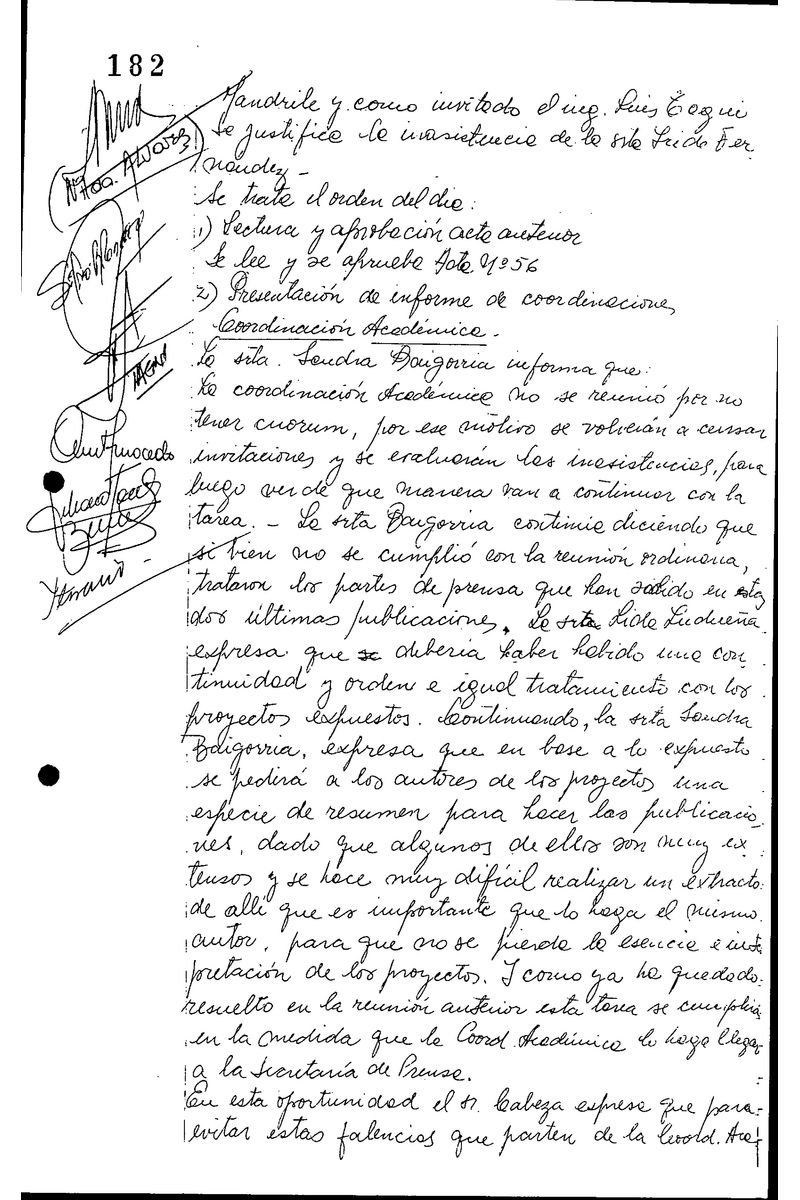 182
Mandrile y como invitado el ing. Luis
se justifica la inasistencia de la srta Lido Fer
nandez -
Se trata el orden del dia:
1) Lectura y aprobación acta anterior
Se lee y se aprueba Acta Nº 56
2) Presentación de informe de coordinaciones
Coordinación Académica.
La srta. Sandra Baigorria informa que:
La coordinación Académica no se reunió por no
tener cuorum, por ese motivo se volverán a cursar
invitaciones y se evaluarán las inasistencias, para
luego ver de que manera van a continuar con la
tarea. - La srta Baigorria continúa diciendo que
si bien no se cumplió con la reunión ordinaria,
trataron los partes de prensa que han salido en estas
dos últimas publicaciones. La srta Lida Ludueña
expresa que se debería haber habido una con
tinuidad y orden e igual tratamiento con los
proyectos expuestos. Continuando, la srta Sandra
Baigorria, expresa que en base a lo expuesto
se pedirá a los autores de los proyectos una
especie de resumen para hacer las publicacio
nes, dado que algunos de ellos son muy ex
tensos y se hace muy difícil realizar un extracto
de allí que es importante que lo haga el mismo
autor, para que no se pierda la esencia e inte
pretación de los proyectos. Y como ya ha quedado
resuelto en la reunión anterior esta tarea se cumplirá
en la medida que la Coord. Académica lo haga llegar
a la Secretaría de Prensa.
En esta oportunidad el sr. Cabeza expresa que para
evitar estas falencias que parten de la Coord. Aca
Alvarez